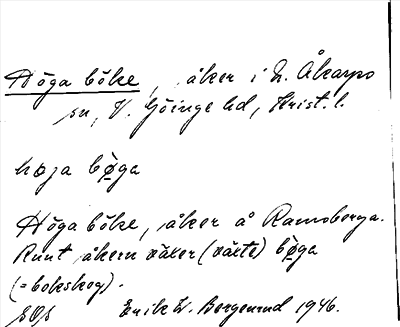 Höga böke, åker i N. Åkarps
sn, V. Göinge hd, Krist. l.
høja bø̱ga
Höga böke, åker å Ramsberga.
Runt åkern växer (växte) bø̱ga
(= bokskog).
Erik W. Bergenrud 1946.